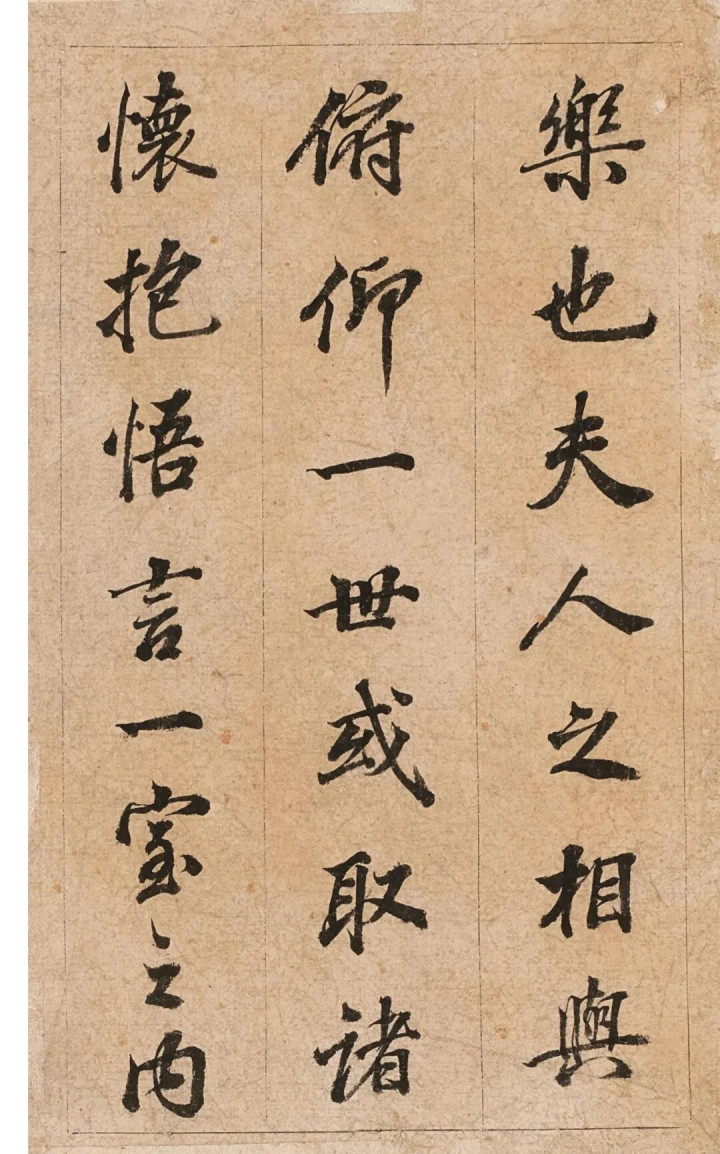 樂也夫人之相與
俯仰一世或取諸
懷抱悟言一室之内